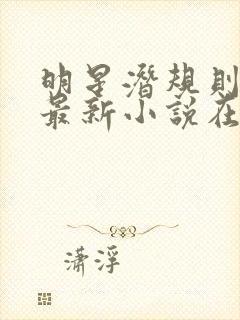 明星潜規則
最新小說在
瀟浮